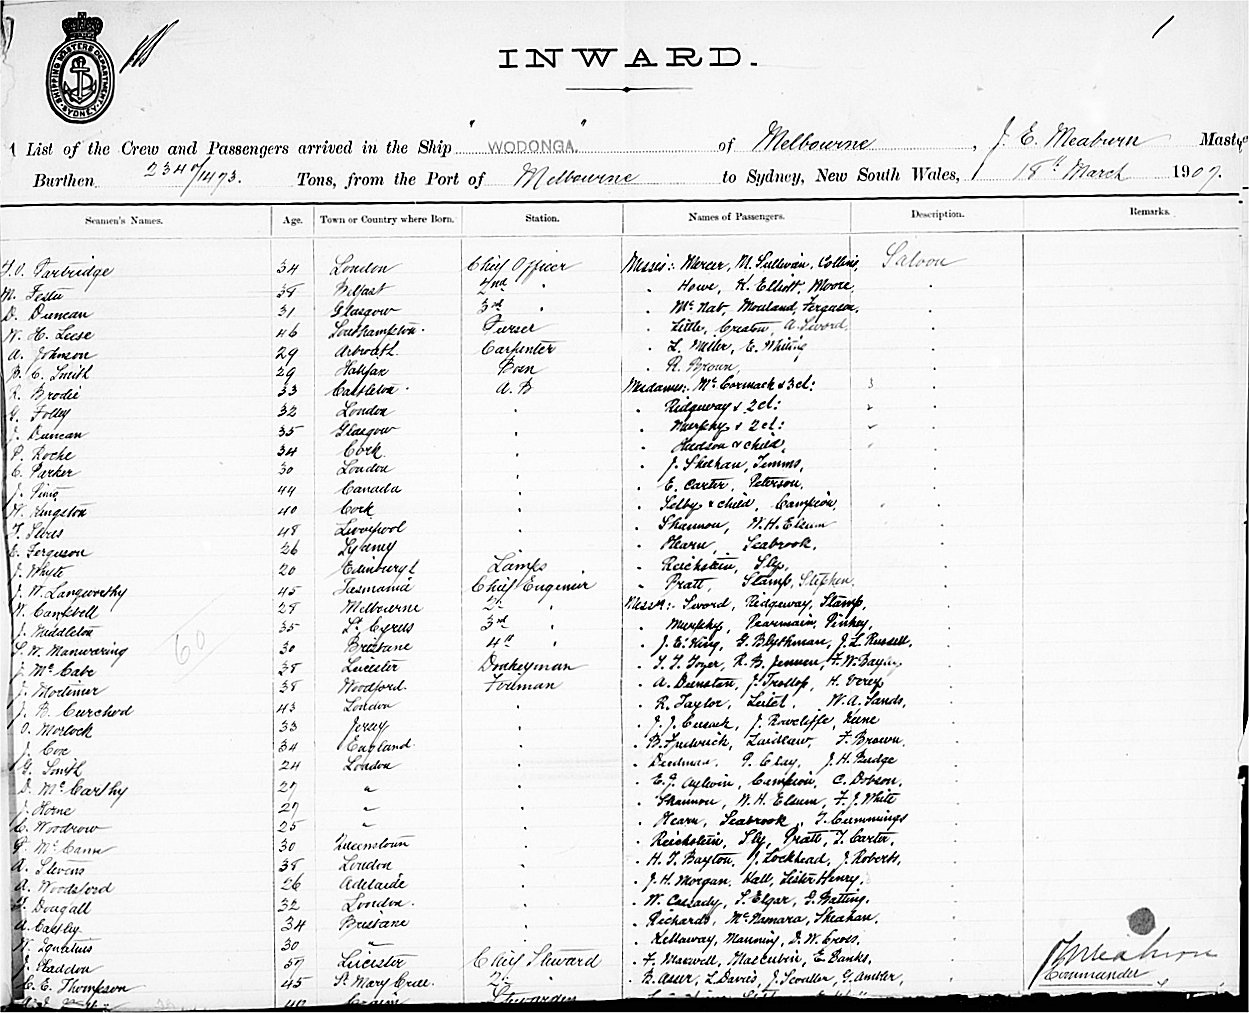 1
SHIPPING MASTERS DEPARTMENT SYDNEY
INWARD.
A List of the Crew and Passengers arrived in the Ship "WODONGA" of Melbourne, J. E. Meaburn Master
Burthen 2340/1473. Tons, from the Port of Melbourne to Sydney, New South Wales, 18th March 1907.
Seamen's Names. Age. Town or Country where Born. Station. Names of Passengers. Description. Remarks.
Partridge 34 London Chief Officer Messrs: Mercer, M. Sullivan, Collins, Saloon
M. Festu 38 Belfast 2nd " " Howe, K. Elliott, Moore,
D. Duncan 31 Glasgow 3rd " " McNab, Mouland, Ferguson,
W. H. Leese 46 Southampton. Purser " Little, Creaton, A. Sword
A. Johnson 29 Arbroath Carpenter " L. Miller, E. Whiting
C. Smith 29 Halifax Bosn " R. Brown,
R. Brodie 33 Castleton. A. B Mesdames: McCormack & 3 cl: 3
G. Folley 32 London " " Ridgeway & 2 cl: 2
J. Duncan 35 Glasgow " " Murphy & 2 cl:
P. Roche 34 Cork " " Hudson & child,
C. Parker 30 London " " J. Sheehan, Timms,
J. King 44 Canada " " E. Carter, Peterson,
Kingston 40 Cork " " Selby & child, Campion,
48 Liverpool " " Shannon, W. H. Elsum
E. Ferguson 26 Sydney " " Hearn, Seabrook,
J. Whyte 20 Edinburgh Lamps " Reichstein, Sly,
J. W. Langworthy 45 Tasmania Chief Engineer " Pratt, Stamp, Stephen,
W. Campbell 28 Melbourne 2nd " Messrs: Sword, Ridgeway, Stamp,
J. Middleton 35 St. Cyrus 3rd " " Murphy, Pearmain, Pinkey,
S. W. Manwaring 30 Brisbane 4th " " J. E. King, G. Blythman, J. L. Russell,
J. McCabe 38 Leicester Donkeyman " T. T. Tozer, R. B. Jensen, F. W.
J. Mortimer 38 Woodford. Fireman " A. Dunstan, J. Trollop, H. Verey
J. B. Curchod 43 London " " R. Taylor, Leitch, W. A. Sands,
O. Morlock 33 Jersey " " J. J. Cusack, J. Rawcliffe, Keene
J. Cox 34 England " " B. Fredrick, Laidlaw, F. Brown,
G. Smith 24 London " " Deedman, P. Clay, J. H. Budge
D. McCarthy 27 " " " E. J. Aylwin, Campion, C. Dobson,
J. Horne 27 " " " Shannon, W. H. Elsum, F. J. White
C. Woodrow 25 " " " Hearn, Seabrook, T. Cummings
P. McCann 30 Queenstown " " Reichstein, Sly, Pratt, T. Carter,
A. Stevens 38 London " " H. T. Bayton, J. Lockhead, J. Roberts,
A. Woodford 26 Adelaide " " J. H. Morgan, Hall, Lister Henry,
Dougall 32 London. " " W. Cassady, S. Elgar, G. Batting,
A. Castley 34 Brisbane " " Richards, McNamara, Sheahan,
W. Ignatius 30 " " " Kellaway, Manning, D. W. Cross,
J. Haddon 57 Leicester Chief Steward " F. Maxwell, E. Banks,
C. E. Thompson 45 St Mary Cree. 2nd " " B. Aser, L. Davis, J. Scouller, G. Ambler,
40 Stewardess
60
J. Meaburn
Commander